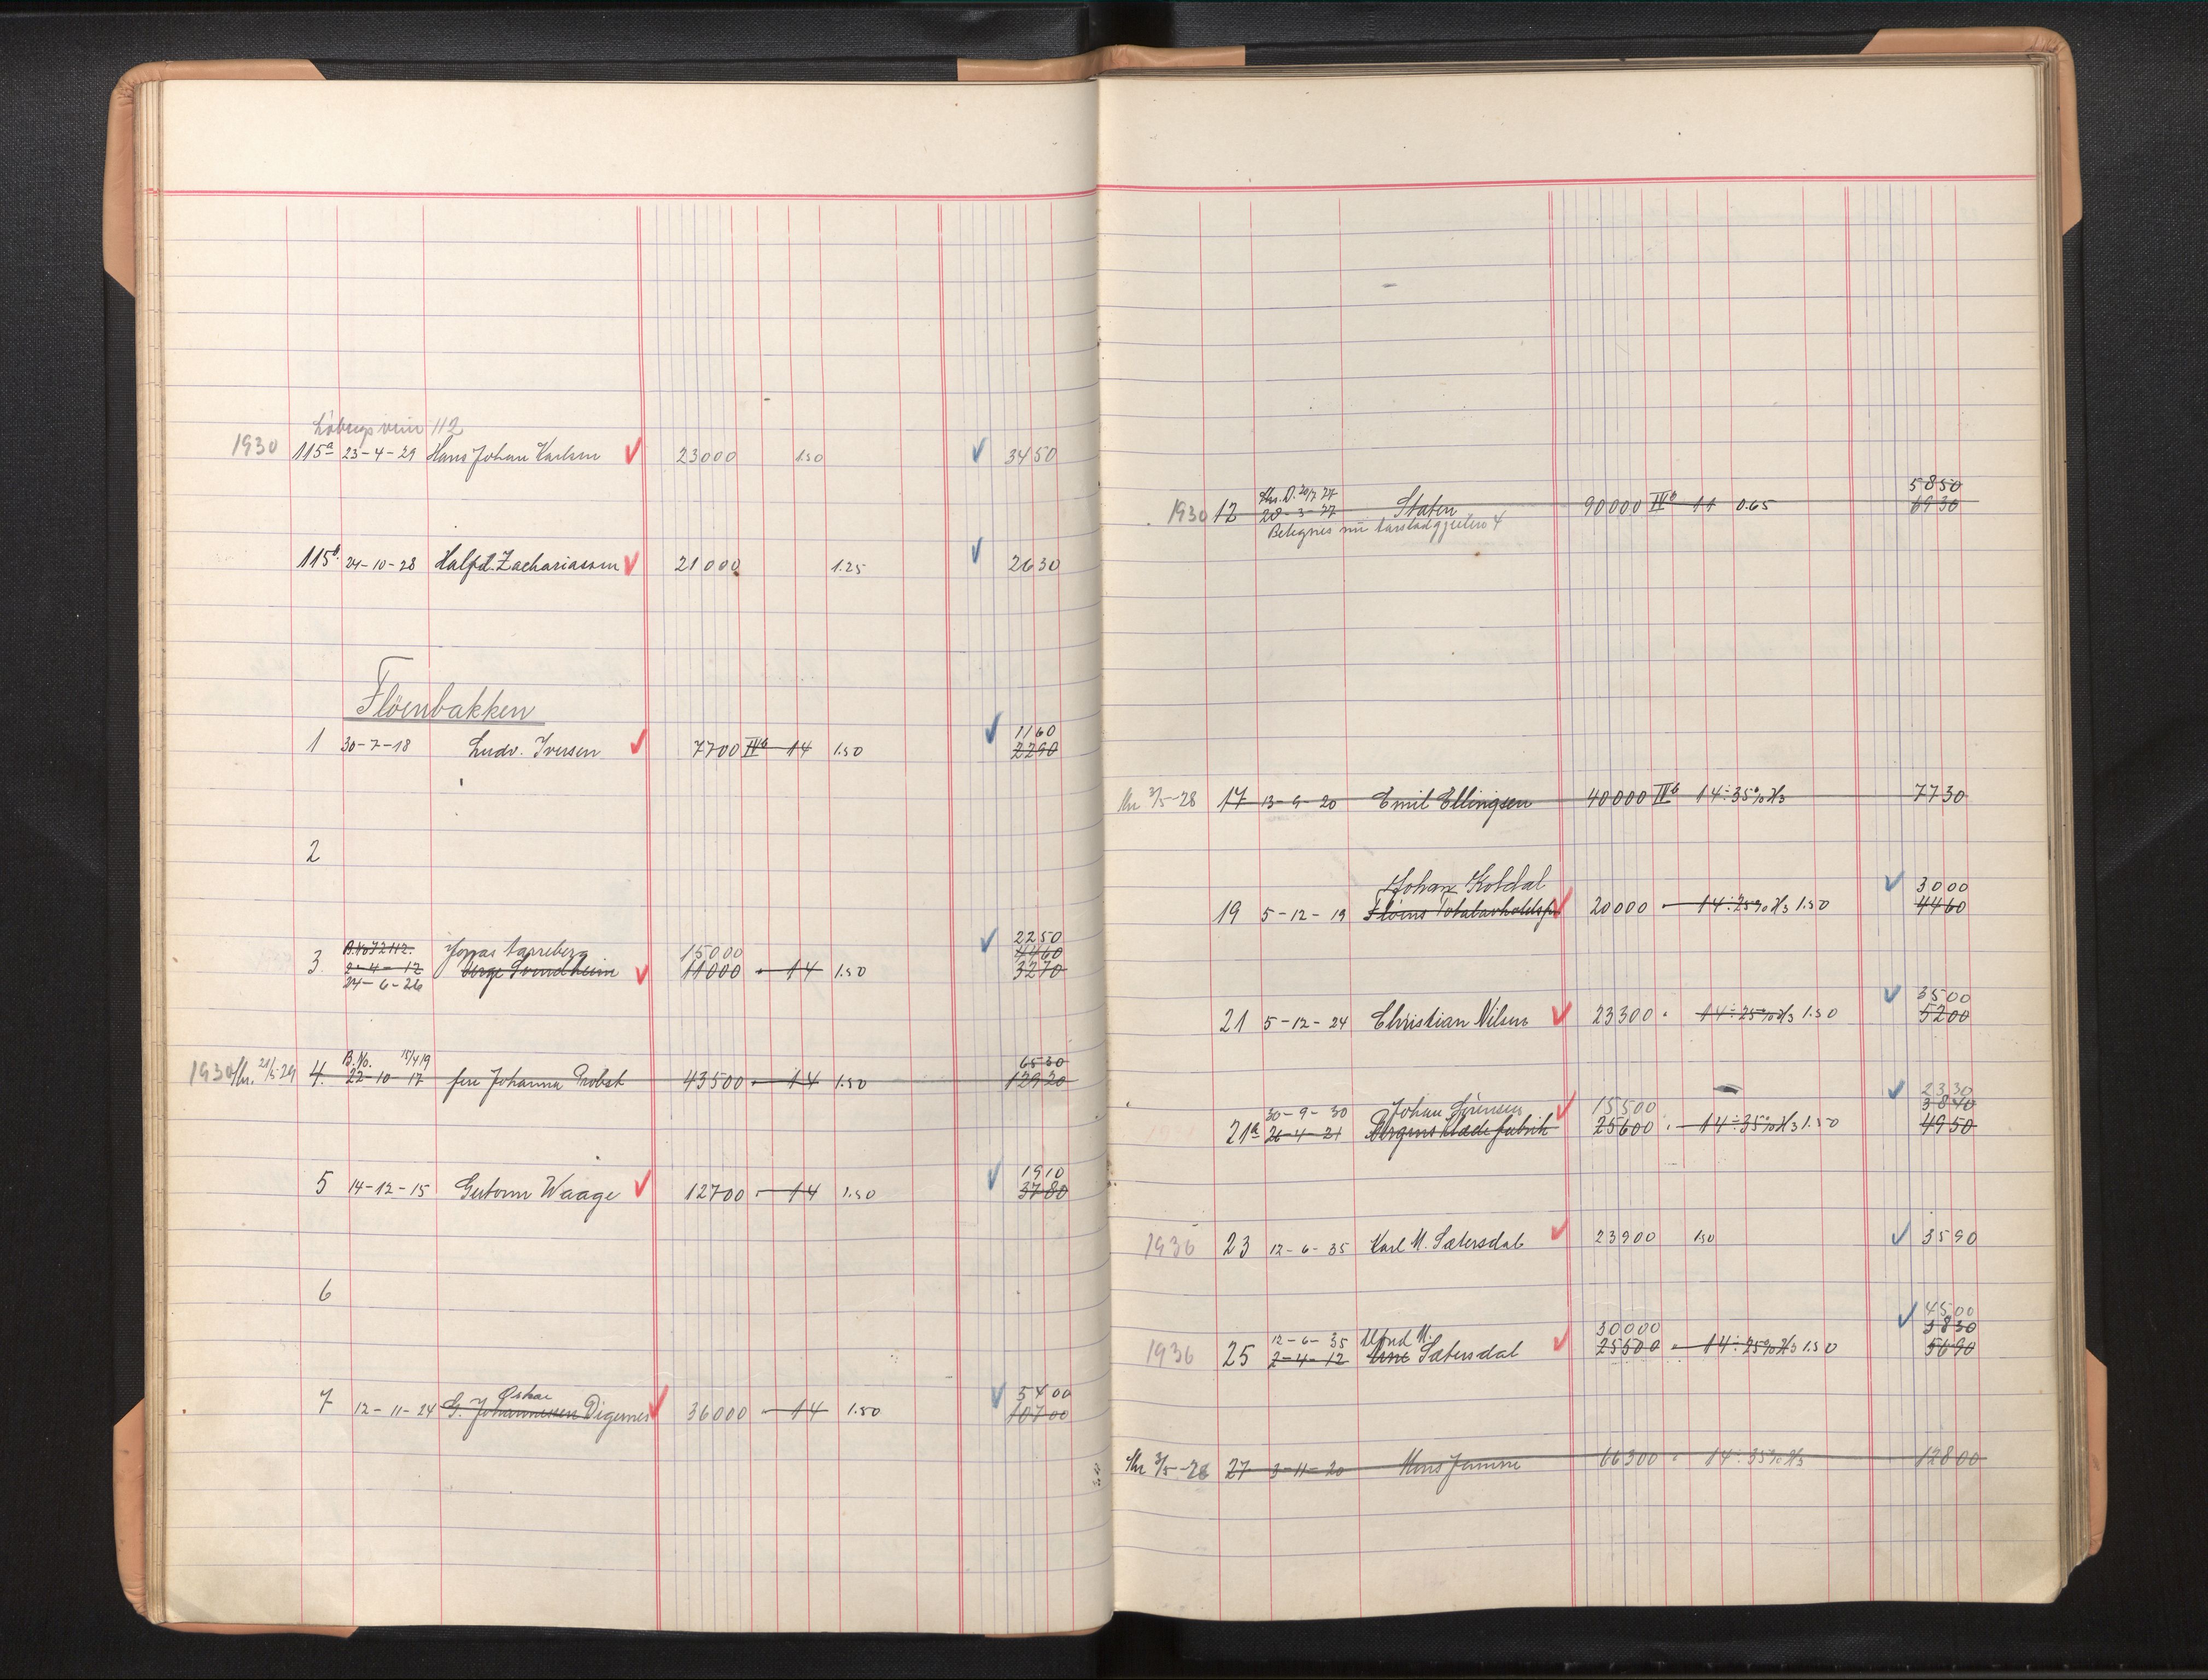 112
1930 115a 23-4-29 Hans Johan Karlsen 23000 1.50 3450
115b 24-10-28 Halfd. Zachariassen 21000 1.25 2630
Flöenbakken
1160
1 30-7-18 Ludv. Iversen 7700 IVb 14 1.50 2290
2
2250
15000 4460
3 2-4-12 11000 14 1.50 3270
24-6-26
B.No. 15/4 19 6530
1930 21/5-29 4. 22-10-17 fru Johanna Probst 43500 14 1.50 12920
1910
5 14-12-15 Gutorm Waage 12700 14 1.50 3780
6
Oskar 5400
7 12-11-24 G. Johannessen Digernes 36000 14 1.50 10700
5850
1930 12 28-3-27 Staten 90000 IVb 11 0.65 6930
Betegnes nu
3/5-28 17 13-9-20 Emil Ellingsen 40000 IVb 14÷35% 7730
Johan Koldal 3000
19 5-12-19 Fløens Totalavholdsf. 20000 14÷25% 1.50 4460
3500
21 5-12-24 Christian Nilsen 23300 14÷25% 1.50 5200
2330
30-9-30 Johan Sørensen 15500 3840
21a 26-4-21 Bergens Kladefabrik 25600 14÷35% 1.50 4950
1936 23 12-6-35 Karl M. Sætersdal 23900 1.50 3590
4500
12-6-35 M. 30000 3830
1936 25 2-4-12 Sætersdal 25500 14÷25% 1.50 5690
3/5-28 27 3-11-20 Mons 66300 14÷35% 12800